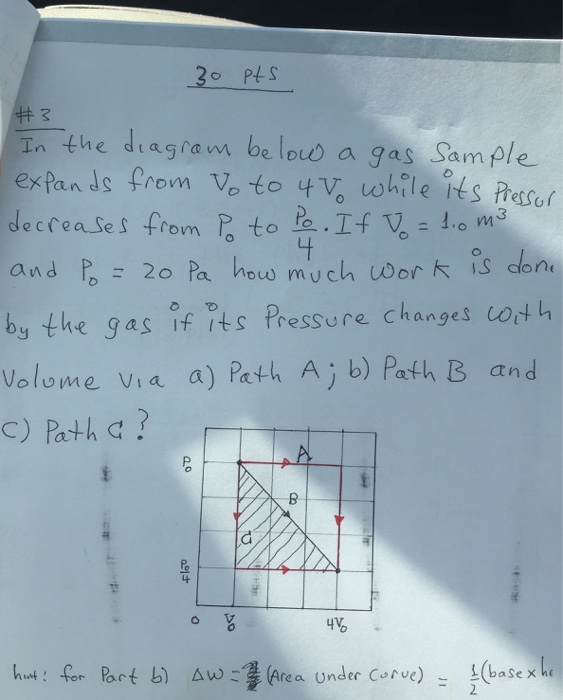 30 Pts
#3
In the diagram below a gas Sample
expands from V₀ to 4V₀ while its Pressur
decreases from P₀ to P₀/4. If V₀ = 1.0 m³
and P₀ = 20 Pa how much work is done
by the gas if its Pressure changes with
Volume via a) Path A; b) Path B and
C) Path C?
P₀
A
B
C
P₀/4
0 V₀ 4V₀
hint: for Part b) ΔW = (Area under Curve) = 1/2 (base x he